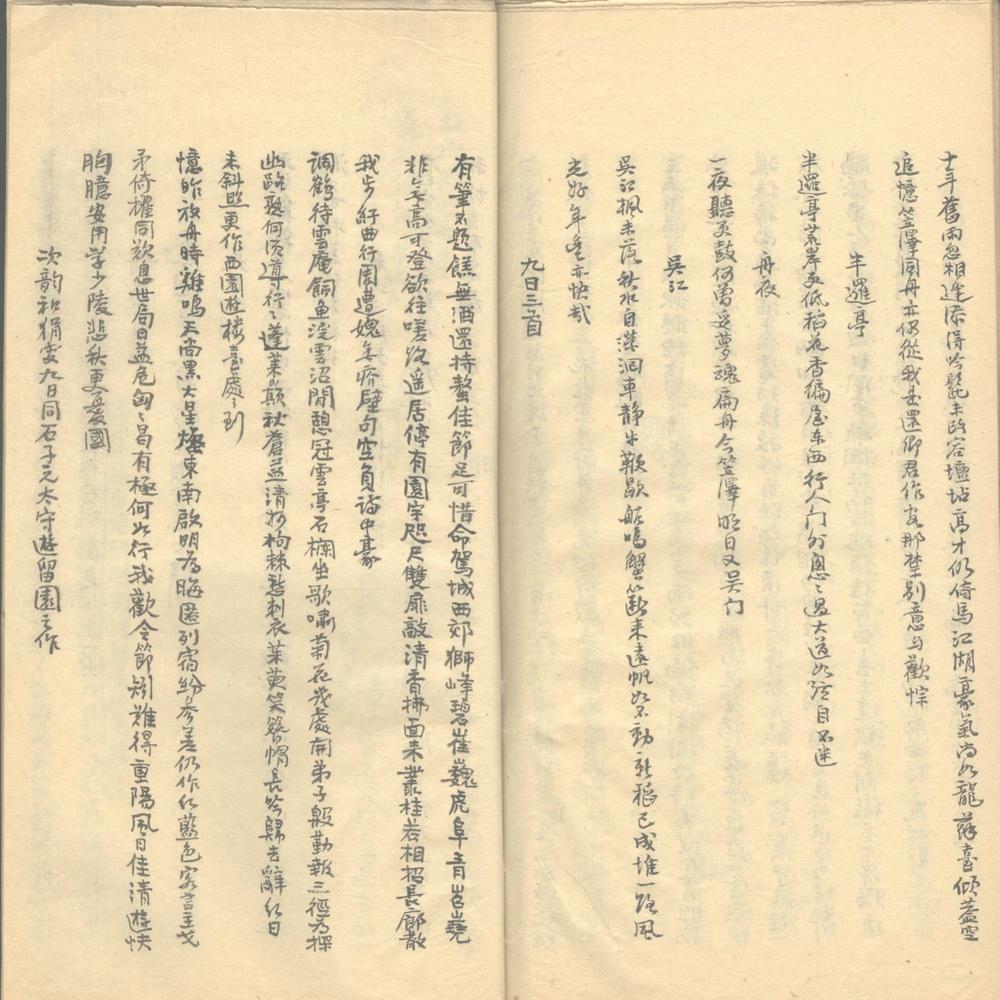 十年舊雨忽相逢添得吟髭未改容壇坫高才仍倚馬江湖豪氣尚如龍蘇臺傾蓋空
追憶笠澤同舟亦仍從我是還鄉君作客那禁別意与歡悰
半邏亭
半邏亭荒岸更低稻花香徧屋东西行人门外悤々過大道如弦自不迷
舟夜
一夜聽更鼓何曾妥夢魂扁舟今笠澤明日又吴门
吴江
吴江枫未落秋水自瀠洄車静牛鞅歇船鳴蟹籪来遠帆如不動新稻已成堆一路風
光好年豐亦快哉
九日三首
有筆不題餻無酒還持螯佳節足可惜命駕城西郊獅峰碧崔巍虎阜青岧嶤
非無高可登欲往嗟路遥居停有園字咫尺雙扉敲清香拂面来叢桂若相招長廊散
我步紆曲行周遭媿無疥壁句空負詩中豪
調鶴待雲庵飼魚浣雲沼閒憩冠雲亭石欄坐歌嘯菊花幾處開弟子殷勤報三徑为探
幽路熟何須導行々蓬莱巔秋蒼益清抄枸棘愁刺衣茱萸笑簪帽長吟歸去辭红日
未斜照更作西園遊樓臺處々到
憶昨放舟時雞鳴天尚黑大星燦東南啟明为晦匿列宿紛參差仍作红藍色客言主戈
矛倚櫂同歎息世局日益危匈々曷有極何如行我歡令節矧難得重陽風日佳清遊快
胸臆安用学少陵悲秋更憂國
次韵和狷叟九日同石子元太守遊留園之作